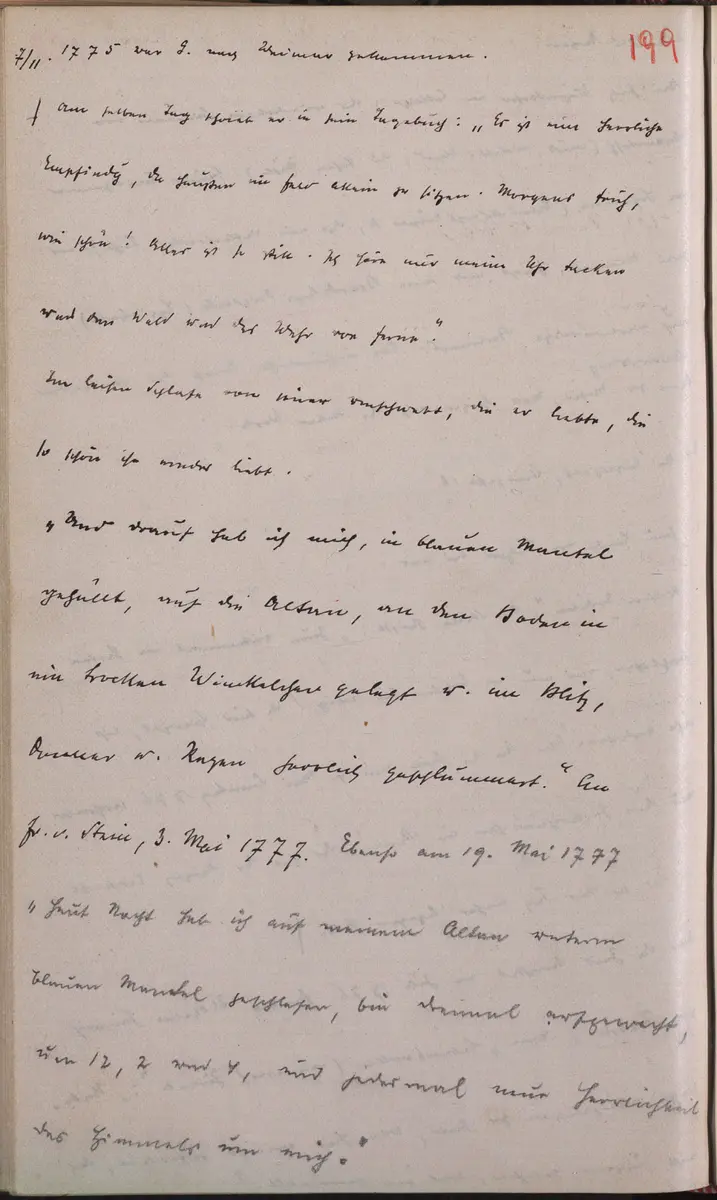 199
7/II. 1775 war G. nach Weimar gekommen.
Am selben Tag schrieb er in sein Tagebuch: „Es ist eine herrliche
Empfindg, da haußen im Feld allein zu sitzen. Morgens früh,
wie schön! Alles ist so still. Ich höre nur meine Uhr tacken
und den Wald und das Wehr von ferne."
Im leisen Schlafe von einer umschwebt, die er liebte, die
so schön ihn wieder liebt.
„Und drauf hab ich mich, in blauen Mantel
gehüllt, auf die Altan, an den Boden in
ein trocken Winckelchen gelegt u. im Blitz,
Donner u. Regen herrlich geschlummert." An
Fr. v. Stein, 3. Mai 1777. Ebenso am 19. Mai 1777
„Heut Nacht hab ich auf meinem Altan unterm
blauen Mantel geschlafen, bin dreimal aufgewacht,
um 12, 2 und 4, und jedesmal neue Herrlichkeit
des Himmels um mich."